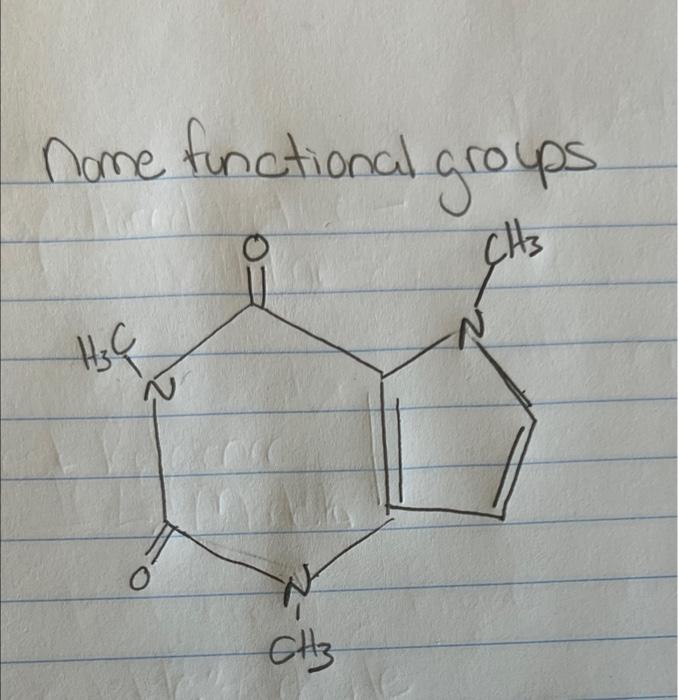 Name functional groups
O
CH3
H3C
N
N
O
N
CH3